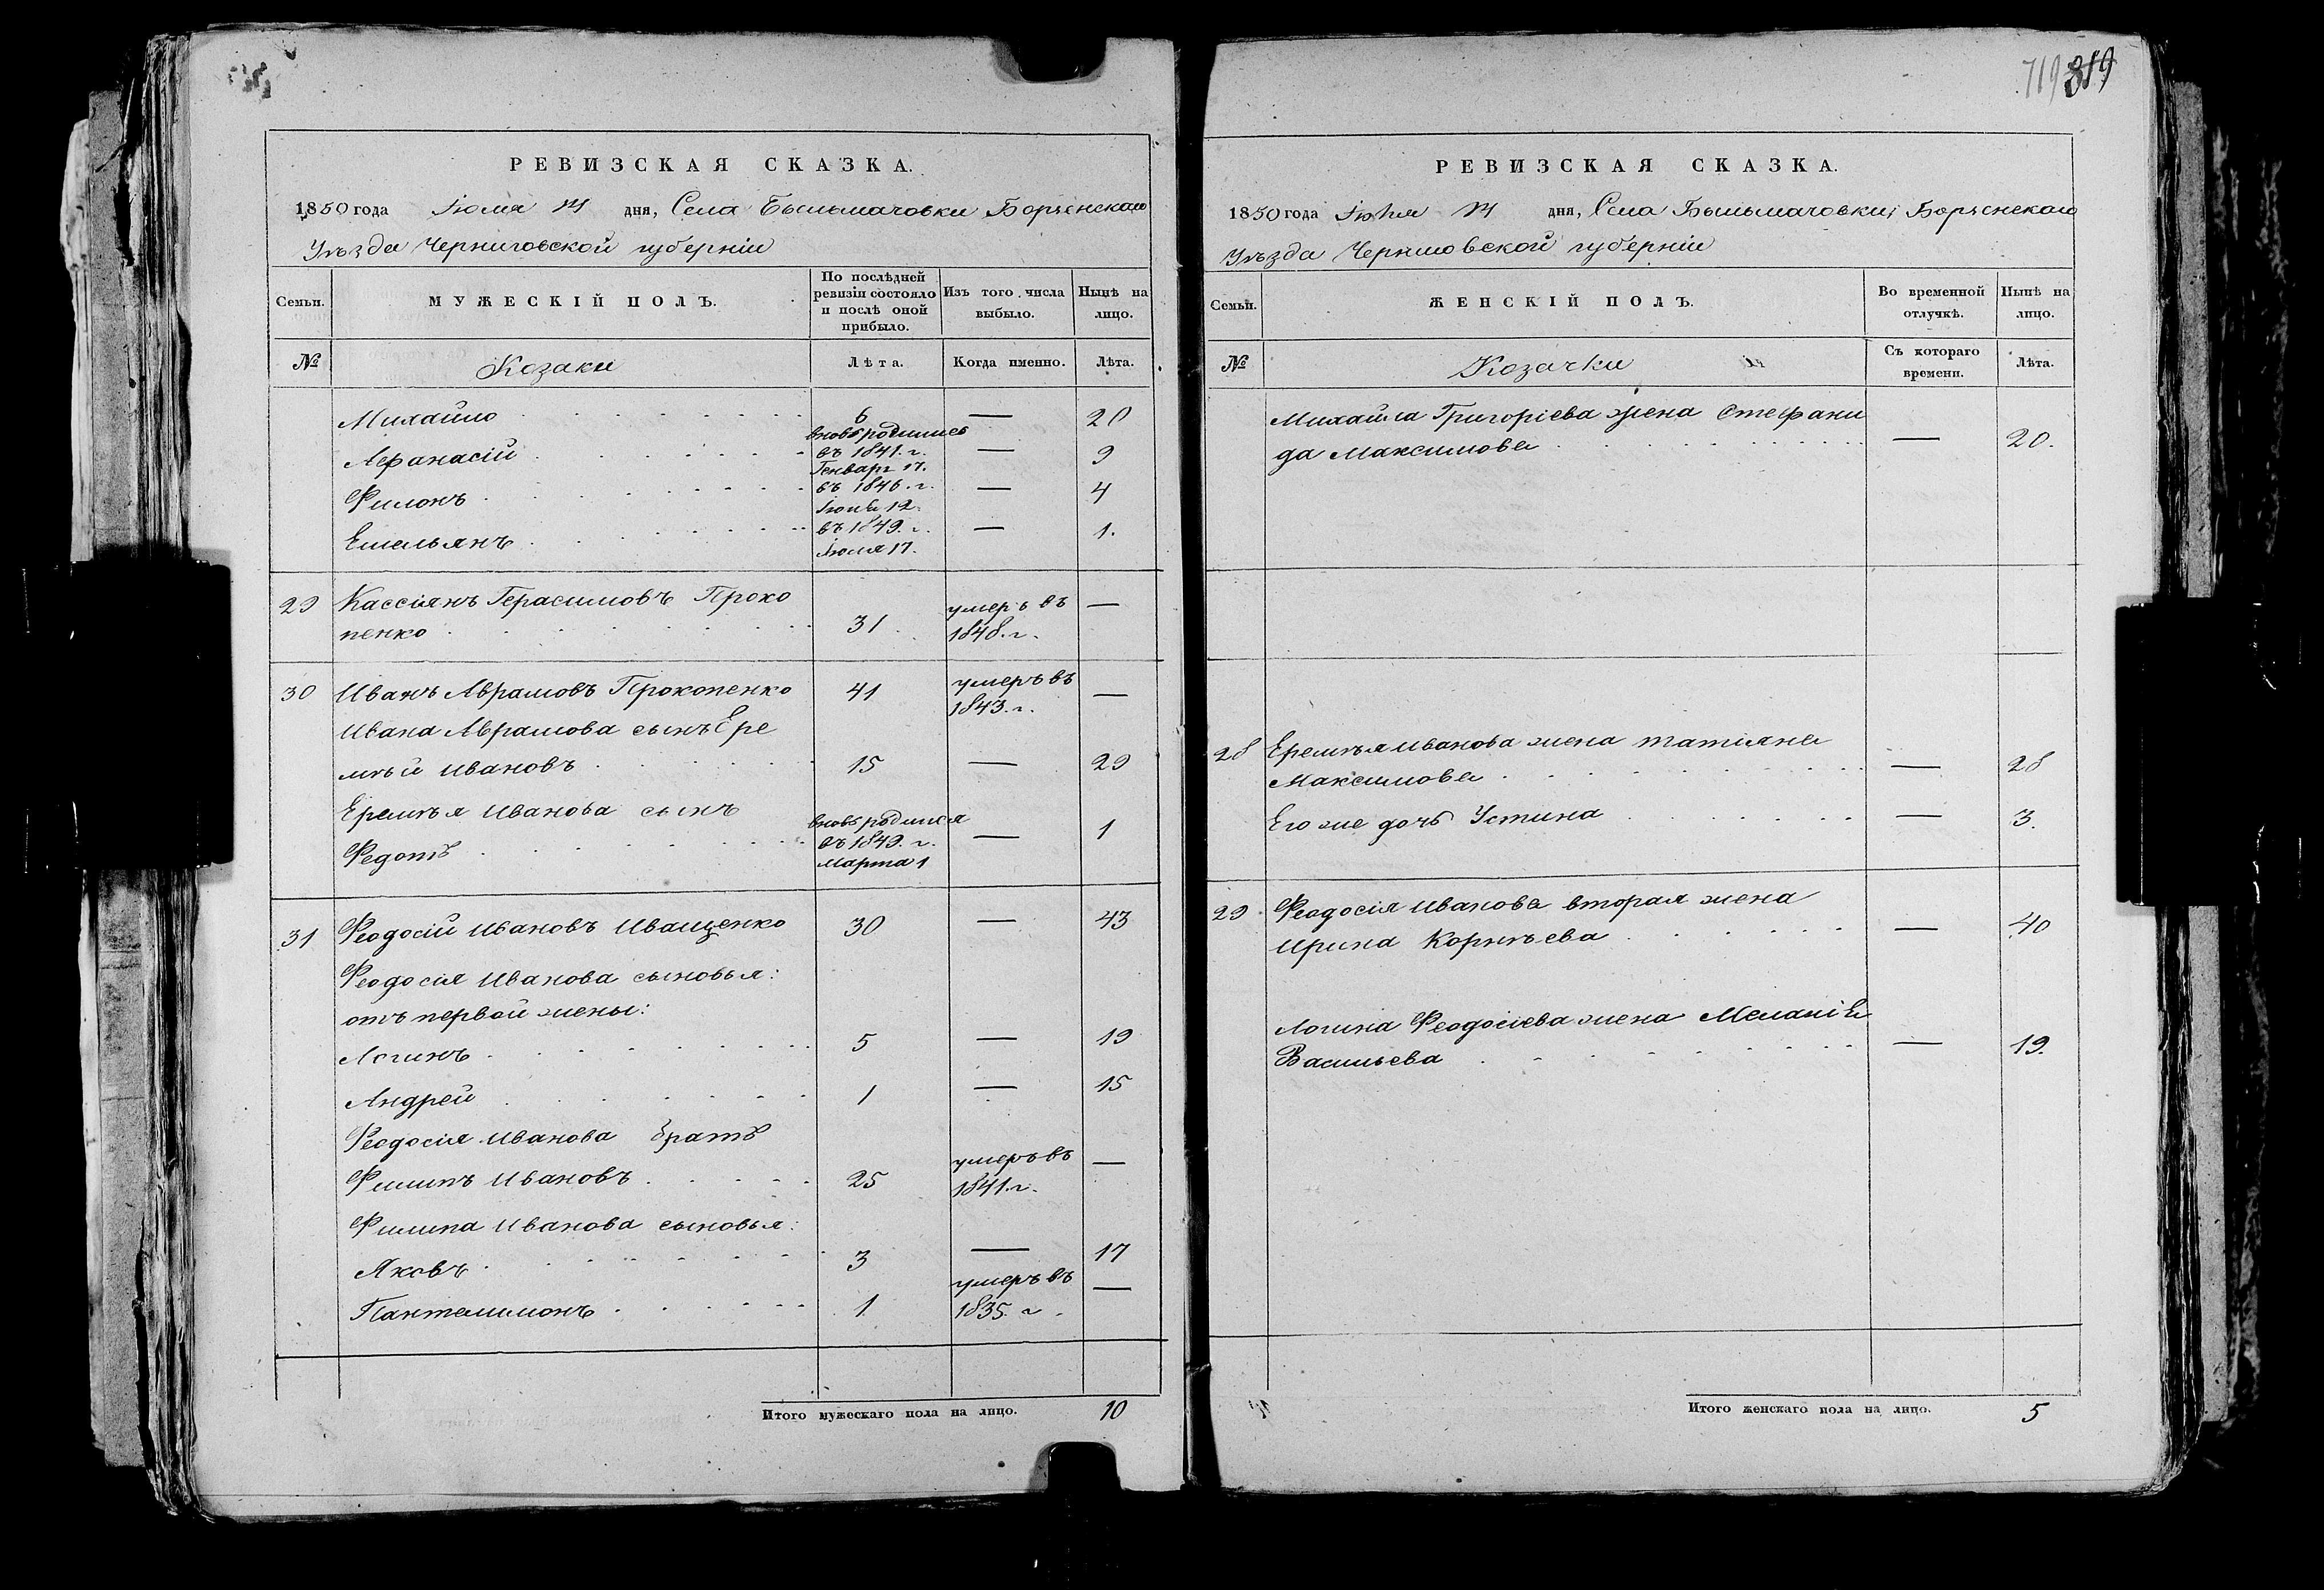 РЕВИЗСКАЯ СКАЗКА.
1850 года Іюля дня, Села Бельмачовки Борзенскаго
Уѣзда Черниговской губерніи
Семьи.
МУЖЕСКІЙ ПОЛЪ.
По послѣдней
ревизіи состояло
и послѣ оной
прибыло.
Изъ того числа
выбыло.
Нынѣ на
лицо.
№ Козаки Лѣта. Когда именно. Лѣта.
Михайло 6 — 20
вновь родились
Афанасій въ 1841. г. — 9
Генваря 17.
Филонъ въ 1846. г. — 4
Іюня 12.
Емельянъ въ 1849. г. — 1.
Іюля 17.
29 Кассіянъ Герасимовъ Проко умеръ въ —
пенко 31 1848. г.
30 Иванъ Аврамовъ Прокопенко 41 умеръ въ —
1843. г.
Ивана Аврамова сынъ Ере
мѣй Ивановъ 15 — 29
Еремѣя Иванова сынъ
вновь родился
Федотъ въ 1849. г. — 1
Марта 1
31 Феодосій Ивановъ Иващенко 30 — 43
Феодосія Иванова сыновья:
отъ первой жены:
Логинъ 5 — 19
Андрей 1 — 15
Феодосія Иванова братъ
Филипъ Ивановъ 25 умеръ въ —
1841. г.
Филипа Иванова сыновья:
Яковъ 3 — 17
Пантелимонъ 1 умеръ въ —
1835. г.
Итого мужескаго пола на лицо. 10
719 819
РЕВИЗСКАЯ СКАЗКА.
1850 года Іюля дня, Села Бельмачовки, Борзенскаго
Уѣзда Черниговской губерніи
Семьи.
ЖЕНСКІЙ ПОЛЪ.
Во временной
отлучкѣ.
Нынѣ на
лицо.
№ Козачки Съ котораго
времени. Лѣта.
Михайла Григоріева жена Стефани
да Максимова — 20.
28 Еремѣя Иванова жена Татіяна
Максимова — 28
Его же дочь Устина — 3.
29 Феодосія Иванова вторая жена
Ирина Корнѣева — 40
Логина Феодосіева жена Меланія
Васильева — 19.
Итого женскаго пола на лицо. 5